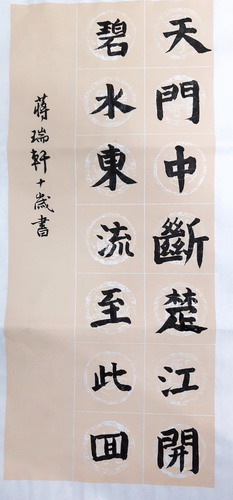 天門中斷楚江開
碧水東流至此回
蔣瑞軒十歲書